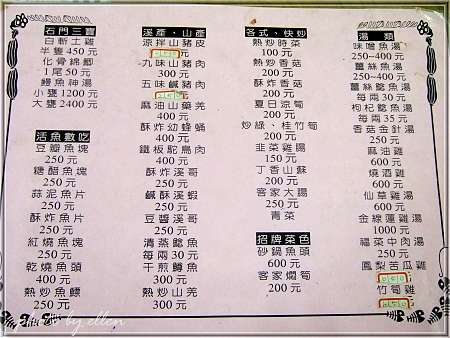 石門三寶
白斬土雞
半隻450元
化骨綿鯽
1尾50元
鰻魚神湯
小甕1200元
大甕2400元
活魚數吃
豆瓣魚塊
250元
糖醋魚塊
250元
蒜泥魚片
250元
酥炸魚片
250元
紅燒魚塊
250元
乾燒魚頭
400元
熱炒魚鰾
250元
溪產、山產
涼拌山豬皮
元
九味山豬肉
300元
五味鹹豬肉
元
麻油山藥羌
400元
酥炸幼蜂蛹
400元
鐵板鴕鳥肉
400元
酥炸溪哥
250元
鹹酥溪蝦
250元
豆醬溪哥
250元
清蒸鯰魚
每兩30元
干煎鱒魚
300元
熱炒山羌
300元
各式、快炒
熱炒時菜
100元
熱炒香菇
200元
酥炸香菇
200元
夏日涼筍
200元
炒綠、桂竹筍
200元
韭菜雞腸
150元
丁香山蘇
200元
客家大腸
250元
青菜
招牌菜色
砂鍋魚頭
600元
客家燜筍
200元
湯 類
味噌魚湯
250~400元
薑絲魚湯
250~400元
薑絲鯰魚湯
每兩30元
枸杞鯰魚湯
每兩35元
香菇金針湯
250元
麻油雞
600元
燒酒雞
600元
仙草雞湯
600元
金線蓮雞湯
1000元
福菜中肉湯
250元
鳳梨苦瓜雞
元
竹筍雞
元
photo by ellen